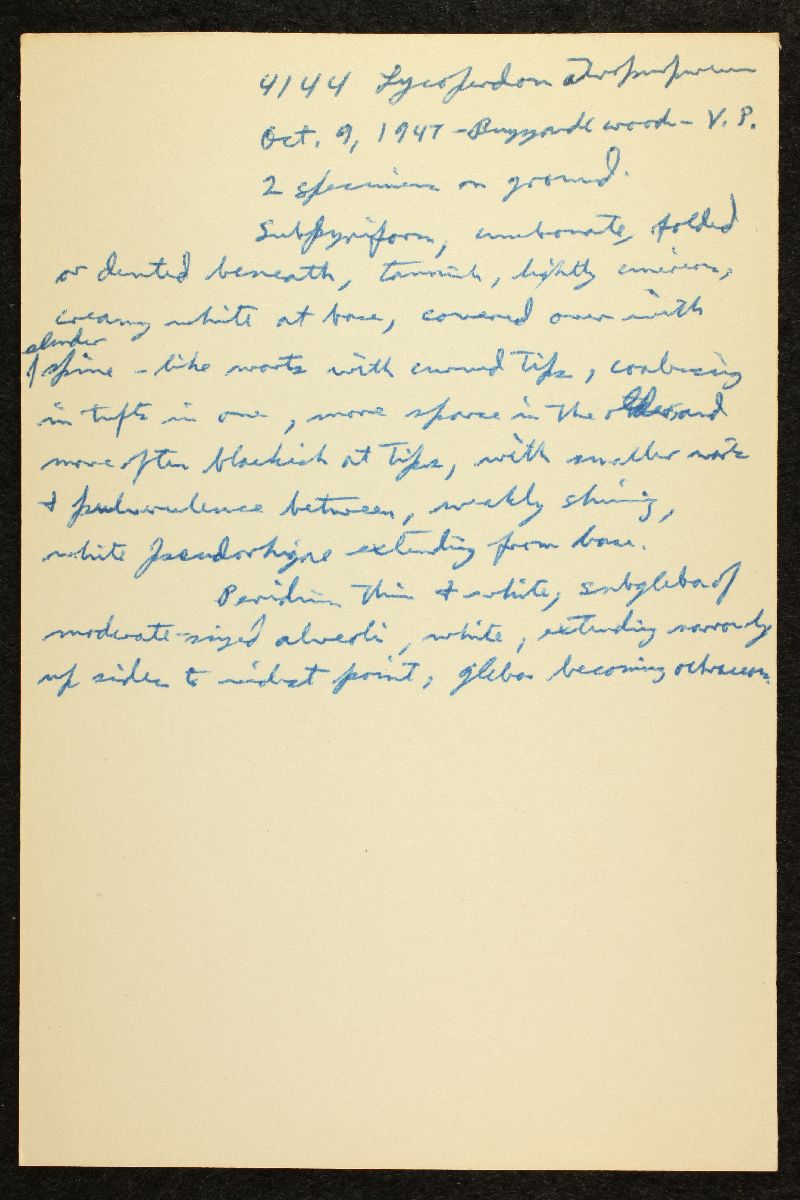 4144 Lycoperdon atropurpureum
Oct. 9, 1947 - woods - V. P.
2 specimens on ground.
Subpyriform, umbonate, folded
or dented beneath, tannish, lightly
creamy white at base, covered over with
slender
spine-like warts with curved tips, coalescing
in tufts in one, more sparse in the other and
more often blackish at tips, with smaller warts
& pulverulence between, weakly shining,
white pseudorhiza extending from base.
Peridium thin & white, subgleba of
moderate-sized alveoli, white, extending narrowly
up sides to point, gleba becoming ochraceous.